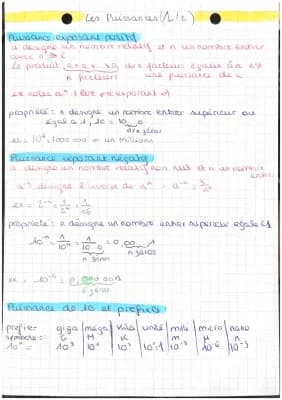 Les Puissances (1/2)
Puissance exposant positif
a désigne un nombre relatif et n un nombre entier
avec n ≥ 2
Le produit a × a × ... × a de n facteurs égaux à a est
n facteurs une puissance de a
est notée aⁿ (lire a exposant n)
propriété : n désigne un nombre entier supérieur ou
égal à 1, 10ⁿ = 10...0
n zéros
ex : 10⁶ = 1 000 000 = un million
Puissance exposant négatif
a désigne un nombre relatif non nul et n un nombre
entier
a⁻ⁿ désigne l'inverse de aⁿ = a⁻ⁿ = 1/aⁿ
ex = 2⁻⁴ = 1/2⁴ = 1/16
propriété : n désigne un nombre entier supérieur égale à 1
10⁻ⁿ = 1/10ⁿ = 1/10...0 = 0,00...1
n zéros n zéros
ex = 10⁻⁶ = 0,000001
6 zéros
Puissance de 10 et préfixes
préfixe = giga | méga | kilo | unité | milli | micro | nano
symbole = G M K m μ n
10ⁿ = 10⁹ 10⁶ 10³ 10⁰=1 10⁻³ 10⁻⁶ 10⁻⁹